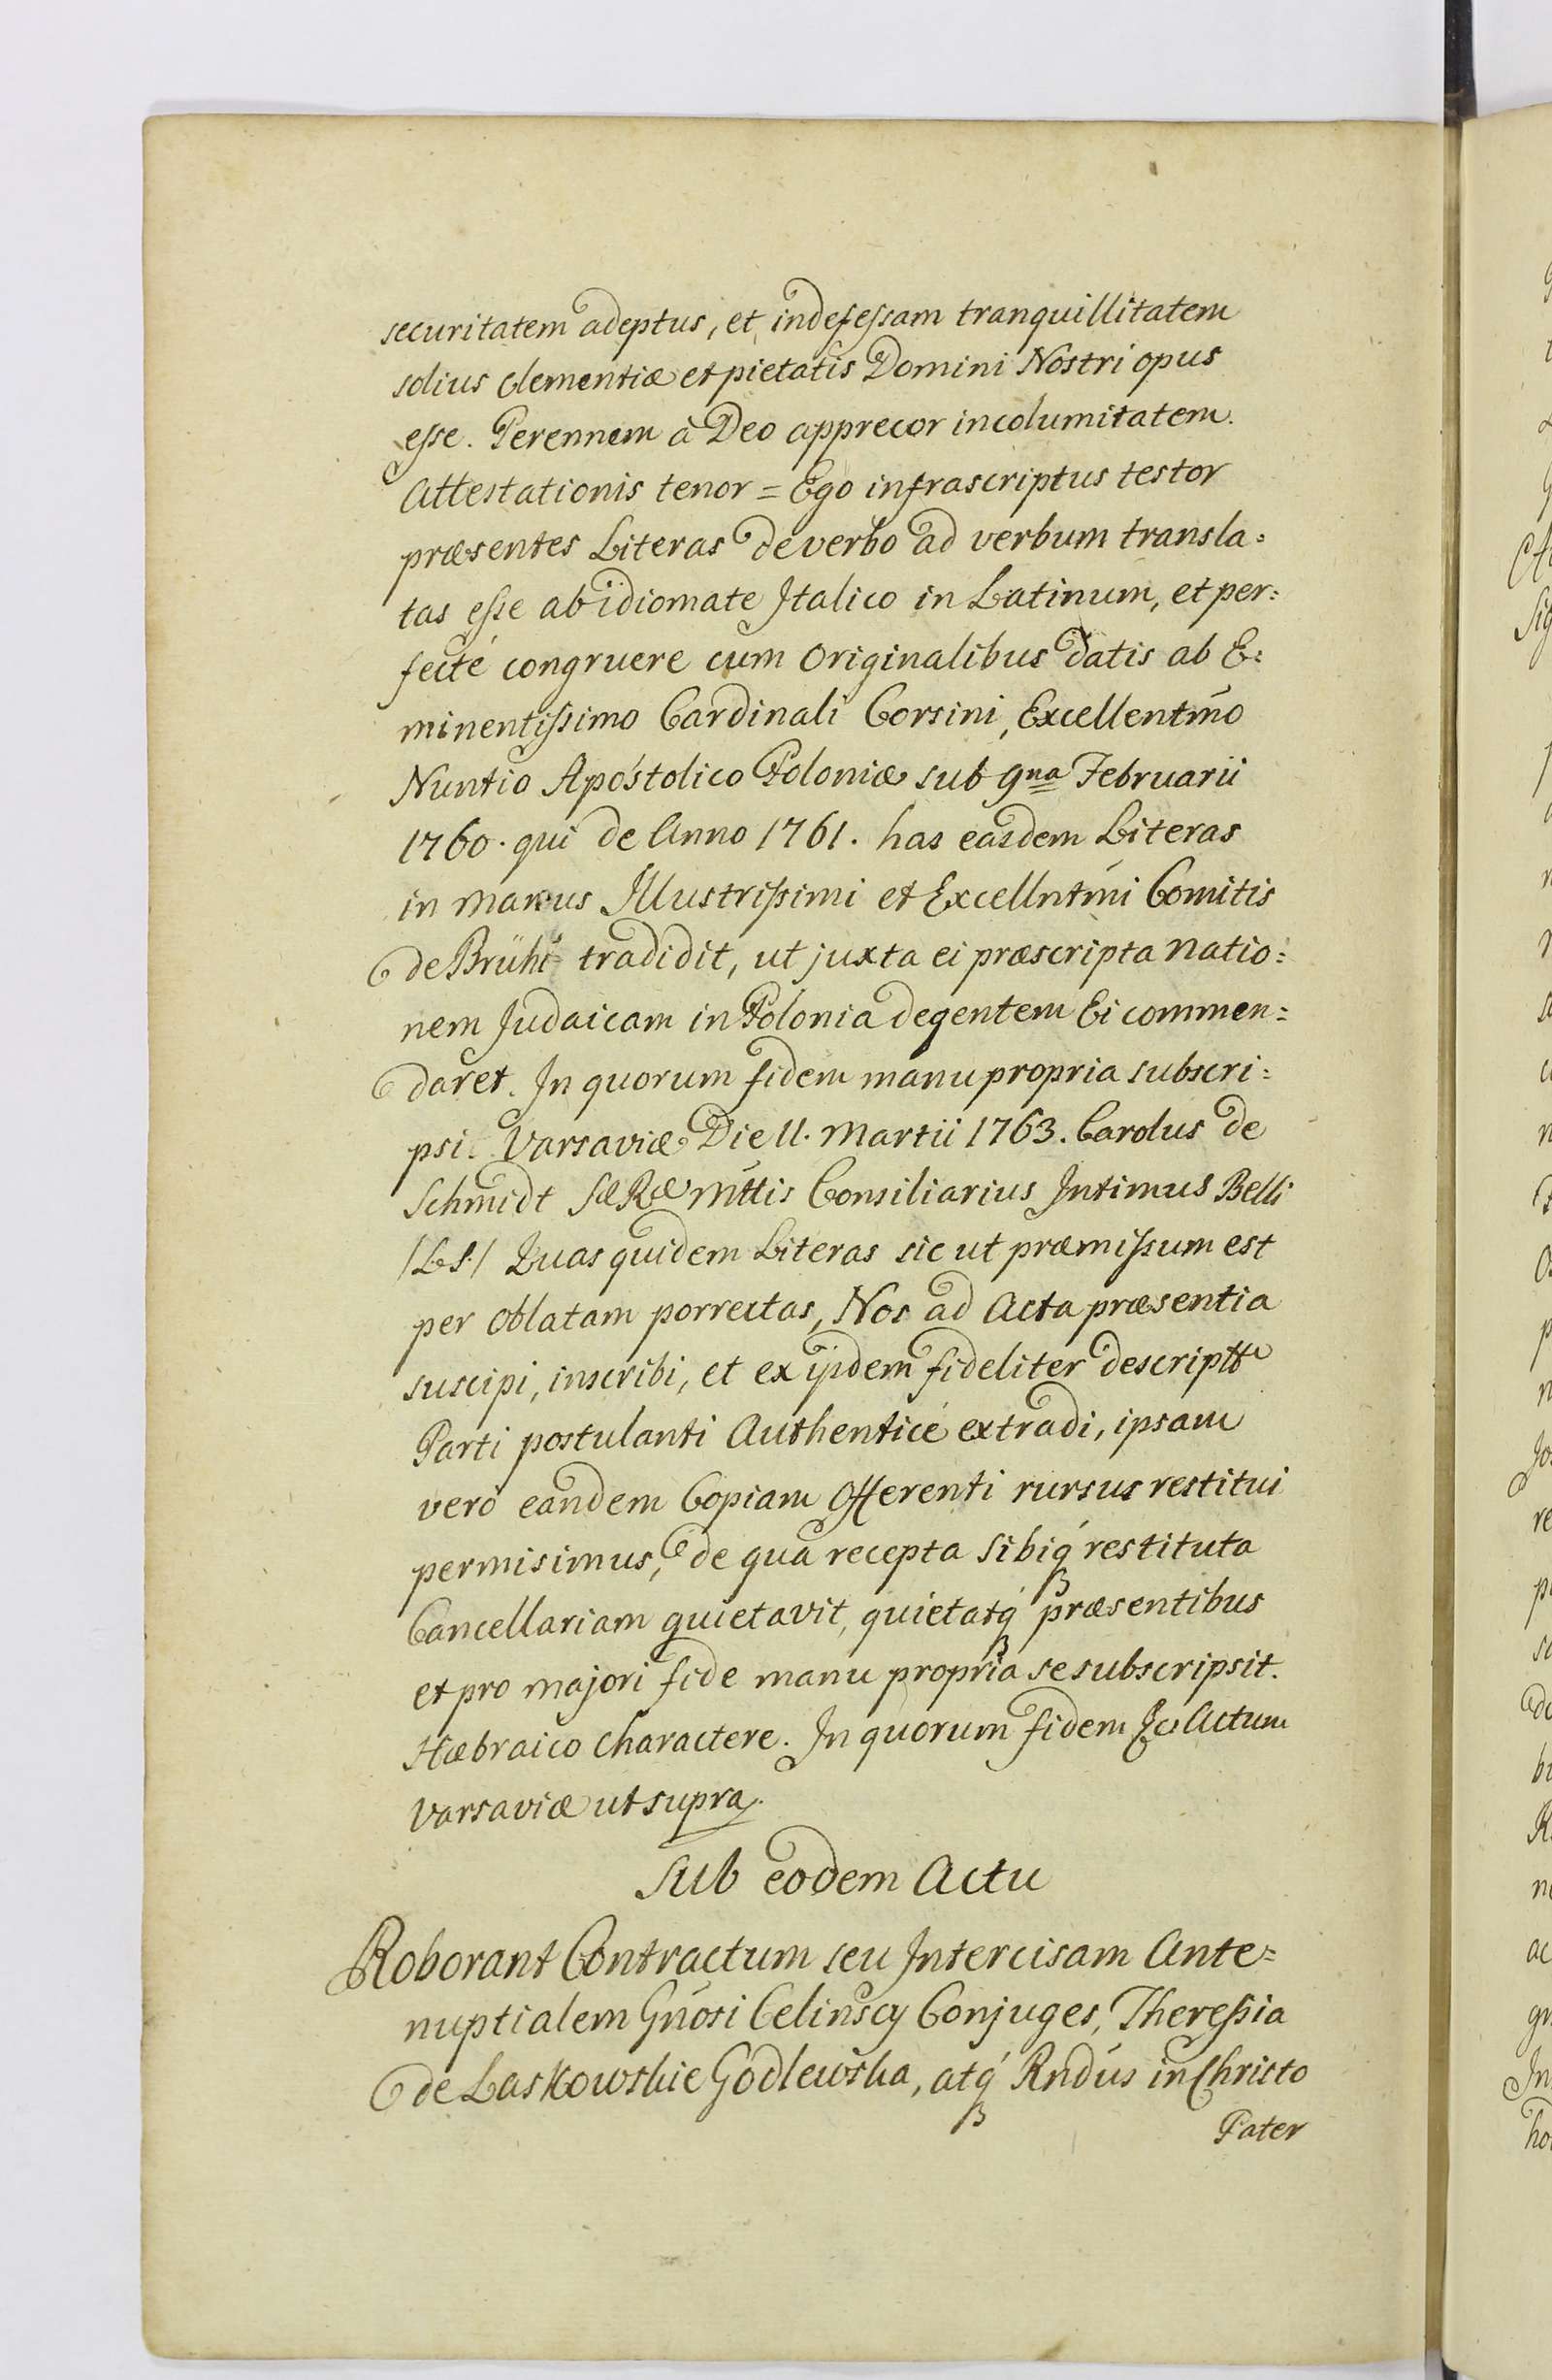 securitatem adeptus, et indefessam tranquillitatem
solius Clementiæ et pietatis Domini Nostri opus
esse. Perennem à Deo apprecor incolumitatem.
Attestationis tenor = Ego infrascriptus testor
præsentes Literas de verbo ad verbum transla=
tas esse ab idiomate Italico in Latinum, et per=
fecté congruere cum Originalibus datis ab E=
minentissimo Cardinali Corsini, Excellentm̃o
Nuntio Apostolico Poloniæ sub 9na Februarii
1760. qui de Anno 1761. has easdem Literas
in manus Illustrissimi et Excellntm̃i Comitis
de Brühl tradidit, ut juxta ei præscripta natio=
nem Judaicam in Polonia degentem Ei commen=
daret. In quorum fidem manu propria subscri=
psi. Varsaviæ Die 11. Martii 1763. Carolus de
Schmidt SæRæ Mttis Consiliarius Intimus Belli
/LS/ Quas quidem Literas sic ut præmissum est
per Oblatam porrectas, Nos ad Acta præsentia
suscipi, inscribi, et ex ijsdem fideliter descriptt
Parti postulanti Authenticé extradi, ipsam
verò eandem Copiam Offerenti rursus restitui
permisimus, de qua recepta sibiq́ restituta
Cancellariam quietavit, quietatq́ præsentibus
et pro majori fide manu propria se subscripsit.
Hæbraico Charactere. In quorum fidem &c Actum
Varsaviæ ut supra.
Sub eodem Actu
Roborant Contractum seu Intercisam Ante=
nuptialem Gñosi Celinscy Conjuges, Theressia
de Laskowskie Godlewska, atq́ Rndus in Christo
Pater